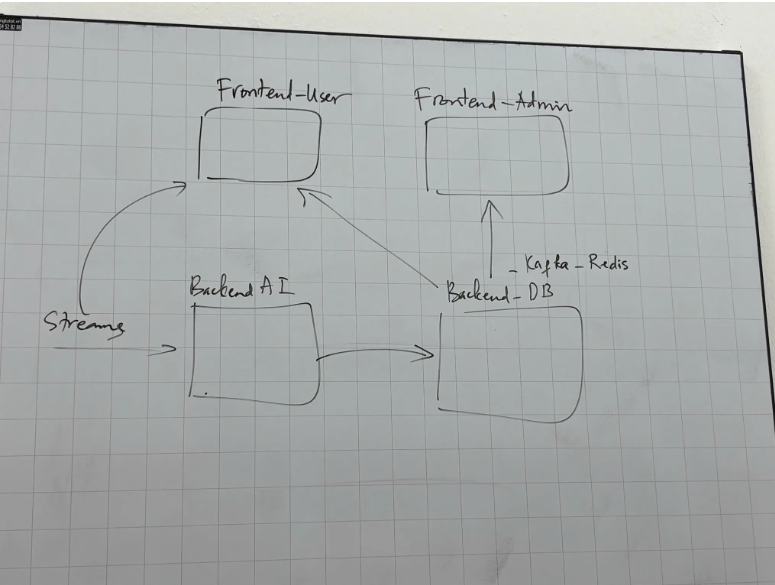 Frontend-User
Frontend-Admin
- Kafka - Redis
Backend AI
Backend-DB
Streams